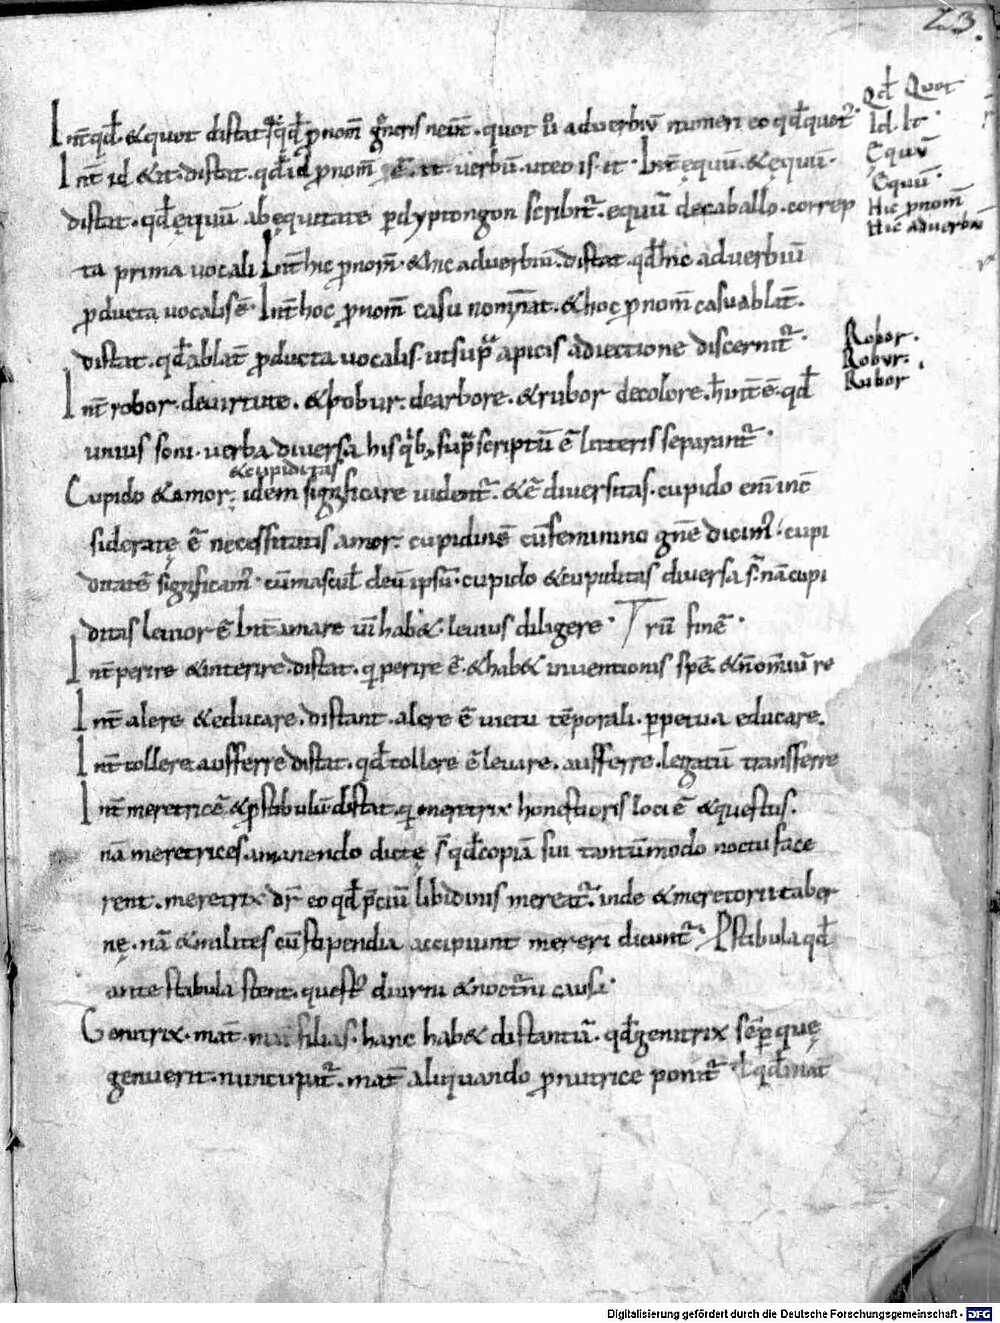 23.
Int̄ qd̄. & quot distat qd̄ pnom̄ gn̄eris neut̄. quot u̅ aduerbiu̅ numeri eo qd̄ quot
Int̄ id & it. distat. qd̄ id pnom̄ ē. it uerbu̅. ut eo is. it. Int̄ ęquu̅. & equu̅.
distat. qd̄ ęquu̅ ab ęquitate p dyptongon scribit̄. equu̅ de caballo. correp
ta prima uocali Int̄ hic pnom̄. & hic aduerbiu̅. distat. qd̄ hic aduerbiu̅
pducta uocalis ē. Int̄ hoc pnom̄ casu nominat̄. & hoc pnom̄ casu ablat̄.
distat. qd̄ ablat̄ pducta uocalis. ut sup̄ apicis adiectione discernit̄.
Int̄ robor de uirtute. & robur. de arbore. & rubor de colore. h̄ int̄ ē. qd̄
unius soni uerba diuersa his quib; sup̄ scriptu̅ ē litteris separant̄.
& cupiditas
Cupido & amor. idem significare uident̄. & ē diuersitas. cupido eni̅ inc̄
siderate ē necessitatis. amor. cupidine̅ cu̅ feminino gn̄e dicim̄. cupi
ditate̅ significam̄. cu̅ mascul̄ deu̅ ipsu̅. cupido & cupiditas diuersa s̄. na̅ cupi
ditas leuior ē Int̄ amare ui̅ hab&. leuius diligere. Tru̅ fine̅.
Int̄ perire & interire. distat. q perire ē. & hab& inuentionis spe̅. & n̄ om̄iu̅ re
Int̄ alere & educare. distant. alere ē uictu te̅porali. ppetua educare.
Int̄ tollere aufferre distat. qd̄ tollere ē leuare. aufferre. legatu̅ transferre
Int̄ meretrice̅ & pstibulu̅ distat. q meretrix honestioris loci ē & questus.
na̅ meretrices. a manendo dictę s̄ qd̄ copia̅ sui tantu̅modo noctu face
rent. meretrix dr̄ eo qd̄ p̄ciu̅ libidinis mereat̄. inde & meretorii taber
nę. na̅ & milites cu̅ stipendia accipiunt mereri dicunt̄. Pstibula qd̄
ante stabula stent. quest̄ diurni & nocturni causa.
Genitrix. mat̄. filias. hanc hab& distantia̅. qd̄ genitrix se̅p quę
genuerit. nuncupat̄. mat̄ aliquando p nutrice ponit̄ l̄ qd̄ mat̄
Qd̄ Quot
Id. It.
Ęquu̅
Equu̅.
Hic pnom̄
Hic aduerbiu̅
Robor.
Robur.
Rubor
Digitalisierung gefördert durch die Deutsche Forschungsgemeinschaft - DFG